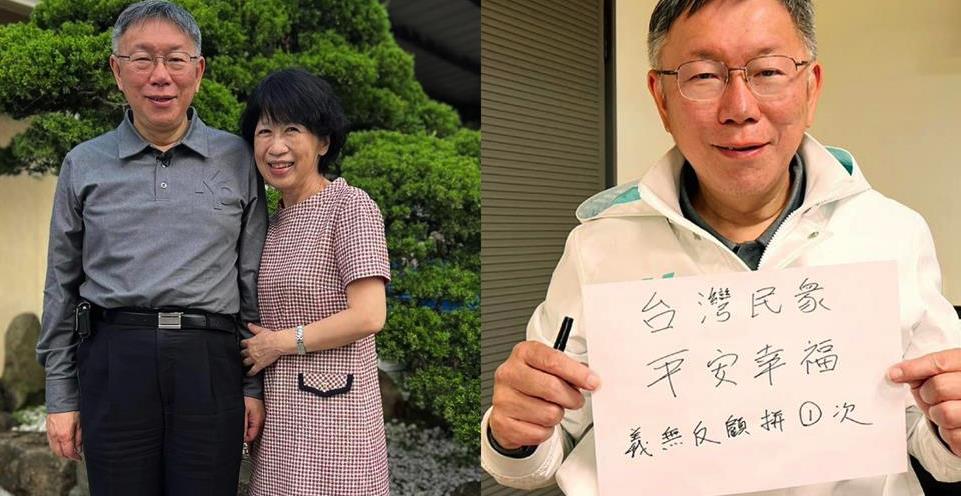 台灣民眾
平安幸福
義無反顧拚①次